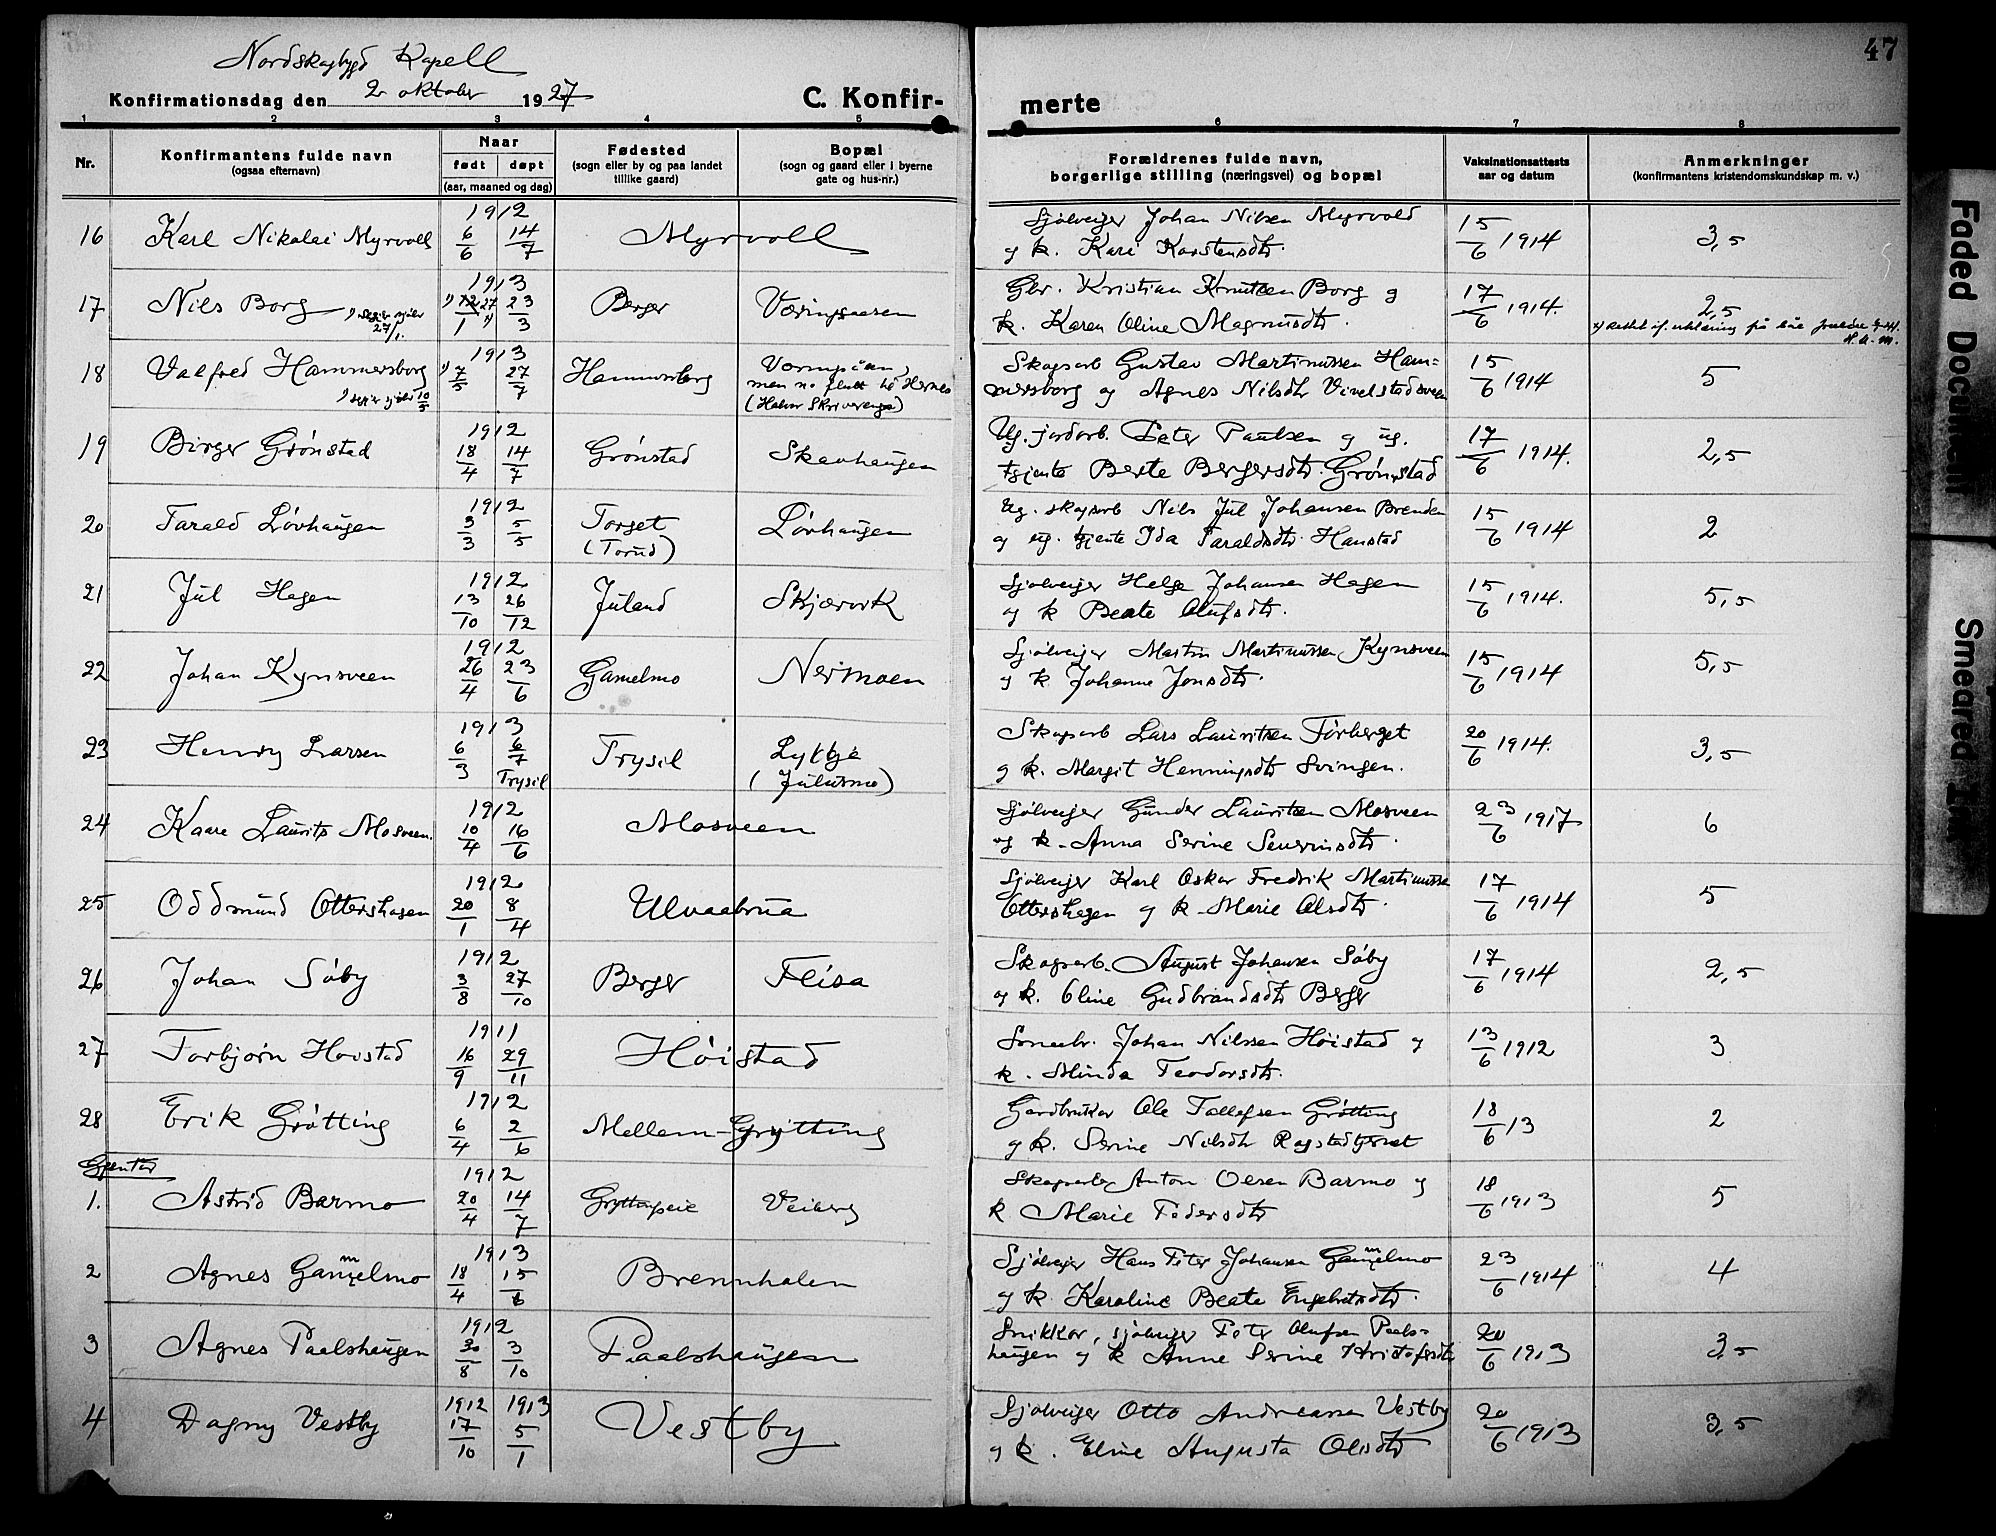 47
Nordskogbygd Kapell
Konfirmationsdag den 2. oktober 1927
C. Konfir-merte
1 2 3 4 5 6 7 8
Nr.
Konfirmantens fulde navn
(ogsaa efternavn)
Naar
født døpt
(aar, maaned og dag)
Fødested
(sogn eller by og paa landet
tillike gaard)
Bopæl
(sogn og gaard eller i byerne
gate og hus-nr.)
Forældrenes fulde navn,
borgerlige stilling (næringsvei) og bopæl
Vaksinationsattests
aar og datum
Anmerkninger
(konfirmantens kristendomskundskap m. v.)
16 Karl Nikolai Myrvoll 1912 6/6 14/7 Myrvoll Sjølveiger Johan Nilsen Myrvold
og k. Kari Karstensdtr. 15/6 1914 3,5
17 Nils Borg 1913 27/1 23/3 Berger Væringsaasen Gbr. Kristian Knutsen Borg og
k. Karen Oline Magnusdtr. 17/6 1914. 2,5
18 Valfred Hammersborg 1913 7/5 27/7 Hammersborg
(Halvor Skriverenga)
Skogsarb Gustav Martinussen Ham=
mersborg og Agnes Nilsdtr 15/6 1914 5
19 Birger Grønstad 1912 18/4 14/7 Grønstad Skavhaugen Ug. jordarb. Peter Paulsen og ug.
tjente Berte Bergersdtr. Grønstad 17/6 1914. 2,5
20 Tarald Løvhaugen 1912 3/3 5/5 Torget
(Torud) Løvhaugen Ug. skogsarb Nils Jul Johansen Brenden
og ug. tjente Ida Taraldsdtr. Hanstad 15/6 1914 2
21 Jul Hagen 1912 13/10 26/12 Juland Skjærvik Sjølveiger Helge Johansen Hagen
og k Beate Olufsdtr. 15/6 1914. 5,5
22 Johan Kynsveen 1912 26/4 23/6 Gamelmo Nermoen Sjølveiger Martin Martinussen Kynsveen
og k Johanne Jonsdtr. 15/6 1914 5,5
23 Henry Larsen 1913 6/3 6/7 Trysil Trysil Lykkje
(Julusmo) Skogsarb Lars Lauritsen Førberget
og k. Margit Henningsdtr Svingen. 20/6 1914. 3,5
24 Kaare Laurits Mosveen. 1912 10/4 16/6 Mosveen Sjølveiger Gunder Lauritsen Mosveen
og k. Anna Serine Severinsdtr. 23/6 1917 6
25 Oddmund Ottershagen 1912 20/1 8/4 Ulvaabrua Sjølveiger Karl Oskar Fredrik Martinussen
Ottershagen og k. Marie Olsdtr. 17/6 1914 5
26 Johan Søby 1912 3/8 27/10 Berger Flisa Skogsarb. August Johansen Søby
og k. Oline Gudbrandsdtr Berger 17/6 1914 2,5
27 Torbjørn Hoistad 1911 16/9 29/11 Høistad Johan Nilssen Høistad og
k. Minda Teodorsdtr. 13/6 1912 3
28 Erik Grøtting 1912 6/4 2/6 Mellem-Grøtting Gardbruker Ole Tollefsen Grøtting
og k. Serine Nilsdtr 18/6 13 2
Gjenter
1. Astrid Barmo 1912 20/4 14/7 Veiberg Skogsarb Anton Olsen Barmo og
k Marie Pedersdtr 18/6 1913 5
2 Agnes Gammelmo 1913 18/4 15/6 Brennhalen Sjølveiger Hans Peter Johansen Gammelmo
og k Karoline Beate Engebretsdtr. 23/6 1914 4
3 Agnes Paalshaugen 1912 30/8 3/10 Paalshaugen Snikker, sjølveiger Peter Olufsen Paals=
haugen og k Anne Serine Kristofersdtr 20/6 1913 3,5
4 Dagny Vestby 1912 17/10 1913 5/1 Vestby Sjølveiger Otto Andreassen Vestby
og k. Eline Augusta Olsdtr 20/6 1913 3,5
Faded Document
Smeared Ink